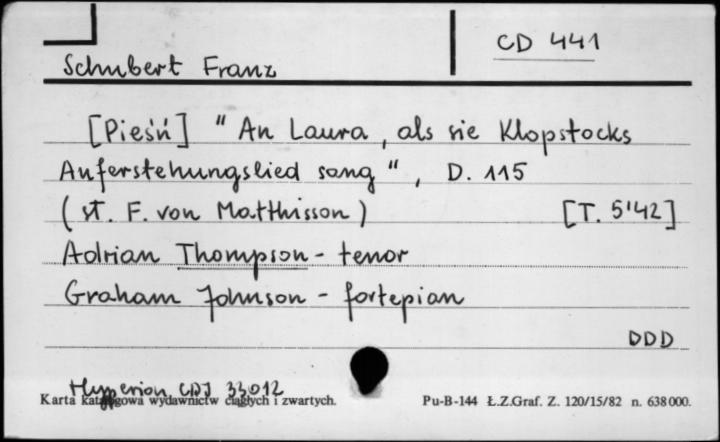 CD 441
Schubert Franz
[Pieśń] " An Laura, als sie Klopstocks
Auferstehungslied sang ", D. 115
(sł. F. von Matthisson) [T. 5'42]
Adrian Thompson - tenor
Graham Johnson - fortepian
DDD
Hyperion CDJ 33012
Karta katalogowa wydawnictw ciągłych i zwartych. Pu-B-144 Ł.Z.Graf. Z. 120/15/82 n. 638000.